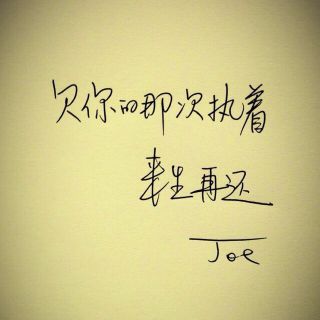 欠你的那次执着
来生再还
Joe